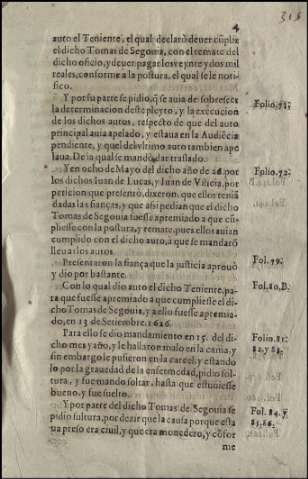 4
313
auto el Teniente, el qual declarò deuer cũplir
el dicho Tomas de Segouia, con el remate del
dicho oficio, y deuer pagar los veynte y dos mil
reales, conforme a la postura, el qual se le noti-
ficò.
Y por su parte se pidio, q̃ se auia de sobreseer Folio.71.
la determinacion deste pleyto, y la execucion
de los dichos autos, respecto de que del auto
principal auia apelado, y estaua en la Audiẽcia
pendiente, y que del vltimo auto tambien ape
laua. De la qual se mandò dar traslado.
Y en ocho de Mayo del dicho año de 26. por Folio.72.
los dichos Iuan de Lucas, y Iuan de Viñeria, por
peticion que presentò, dixeron, que ellos teniã
dadas las fianças, y que assi pedian que el dicho
Tomas de Segouia fuesse apremiado a que cũ-
pliesse con la postura, y remate, pues ellos auian
cumplido con el dicho auto, a que se mandarõ
lleuar los autos.
Presentaron la fiança que la justicia aprouò Fol.79.
y dio por bastante.
Con lo qual dio auto el dicho Teniente, pa Fol.80.B.
ra que fuesse apremiado a que cumpliesse el di-
cho Tomas de Segouia, y a ello fuesse apremia-
do, en 13 de Setiembre. 1626.
Para ello se dio mandamiento en 15. del di- Folio.81.
cho mes y año, y le hallaron malo en la cama, y 82. y 83.
sin embargo le pusieron en la carcel, y estando
lo por la grauedad de la enfermedad, pidio sol-
tura, y fue mando soltar, hasta que estuuiesse
bueno, y fue suelto.
Y por parte del dicho Tomas de Segouia se Fol. 84. y
pidio soltura, por dezir que la causa porque esta 85.86.
ua preso era ciuil, y que era monedero, y cõfor
me